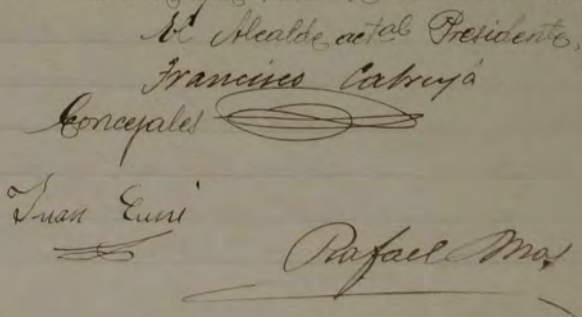 El Alcalde act.al Presidente,
Francisco Cabruja
Concejales
Juan
Rafael Mas